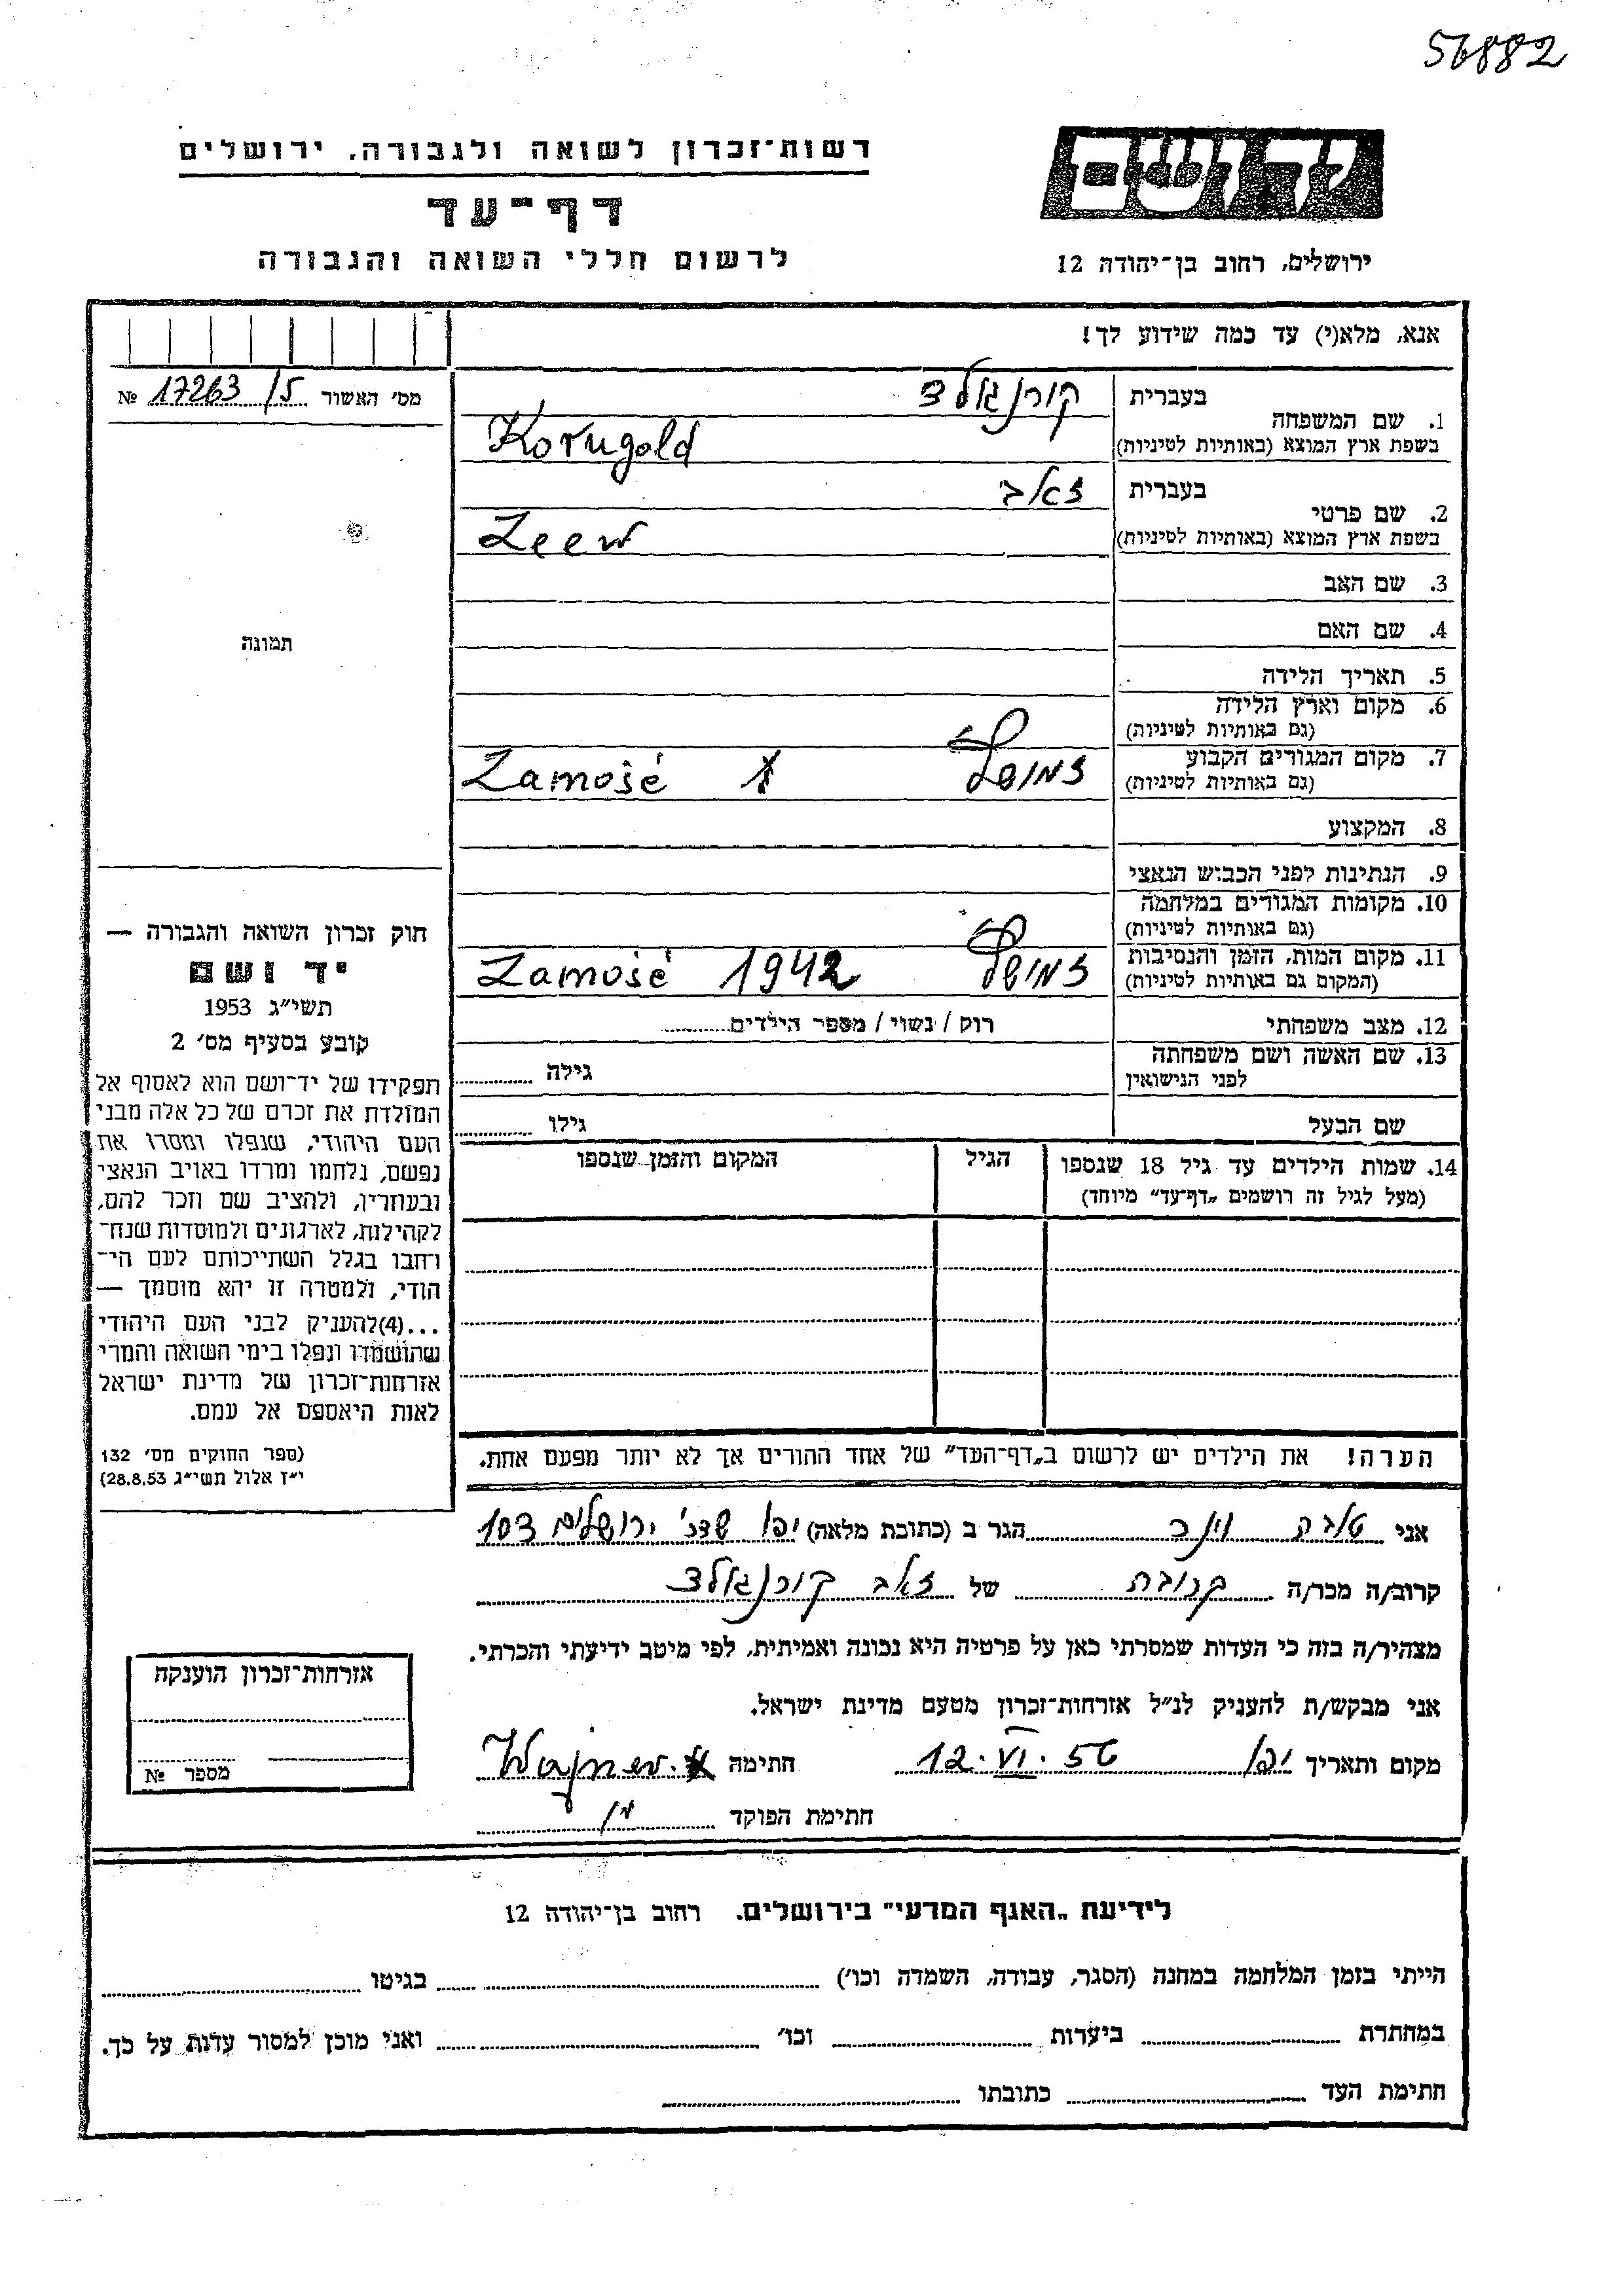 56882
יד ושם
רשות-זכרון לשואה ולגבורה, ירושלים
דף-עד
לרשום חללי השואה והגבורה
ירושלים, רחוב בן-יהודה 12
אנא, מלא(י) עד כמה שידוע לך!
מס׳ האשור 17263/5 №
1. שם המשפחה בעברית קורנגולד
בשפת ארץ המוצא (באותיות לטיניות) Korngold
2. שם פרטי בעברית זאב
בשפת ארץ המוצא (באותיות לטיניות) Zeew
3. שם האב
4. שם האם
5. תאריך הלידה
6. מקום וארץ הלידה
(גם באותיות לטיניות)
7. מקום המגורים הקבוע זמושץ Zamość
(גם באותיות לטיניות)
8. המקצוע
9. הנתינות לפני הכבוש הנאצי
10. מקומות המגורים במלחמה
(גם באותיות לטיניות)
11. מקום המות, הזמן והנסיבות זמושץ 1942 Zamość
(המקום גם באותיות לטיניות)
12. מצב משפחתי רוק / נשוי / מספר הילדים
13. שם האשה ושם משפחתה גילה
לפני הנישואין
שם הבעל גילו
14. שמות הילדים עד גיל 18 שנספו הגיל המקום והזמן שנספו
(מעל לגיל זה רושמים „דף-עד” מיוחד)
תמונה
חוק זכרון השואה והגבורה —
יד ושם
תשי״ג 1953
קובע בסעיף מס׳ 2
תפקידו של יד-ושם הוא לאסוף אל
המולדת את זכרם של כל אלה מבני
העם היהודי, שנפלו ומסרו את
נפשם, נלחמו ומרדו באויב הנאצי
ובעוזריו, ולהציב שם וזכר להם,
לקהילות, לארגונים ולמוסדות שנח-
רחבו בגלל השתייכותם לעם הי-
הודי, ולמטרה זו יהא מוסמך —
...(4)להעניק לבני העם היהודי
שהושמדו ונפלו בימי השואה והמרי
אזרחות-זכרון של מדינת ישראל
לאות היאספם אל עמם.
(ספר החוקים מס׳ 132
י״ז אלול תשי״ג 28.8.53)
הערה! את הילדים יש לרשום ב„דף-העד” של אחד ההורים אך לא יותר מפעם אחת.
אני טובה וינר הגר ב (כתובת מלאה) יפו שדר׳ ירושלים 103
קרוב/ה מכר/ה קרובה של זאב קורנגולד
מצהיר/ה בזה כי העדות שמסרתי כאן על פרטיה היא נכונה ואמיתית, לפי מיטב ידיעתי והכרתי.
אני מבקש/ת להעניק לנ״ל אזרחות-זכרון מטעם מדינת ישראל.
מקום ותאריך יפו 12.VI.56 חתימה Wajner
חתימת הפוקד
אזרחות-זכרון הוענקה
מספר №
לידיעת „האגף המדעי” בירושלים. רחוב בן-יהודה 12
הייתי בזמן המלחמה במחנה (הסגר, עבודה, השמדה וכו׳) בגיטו
במחתרת ביערות וכו׳ ואני מוכן למסור עדות על כך.
חתימת העד כתובתו